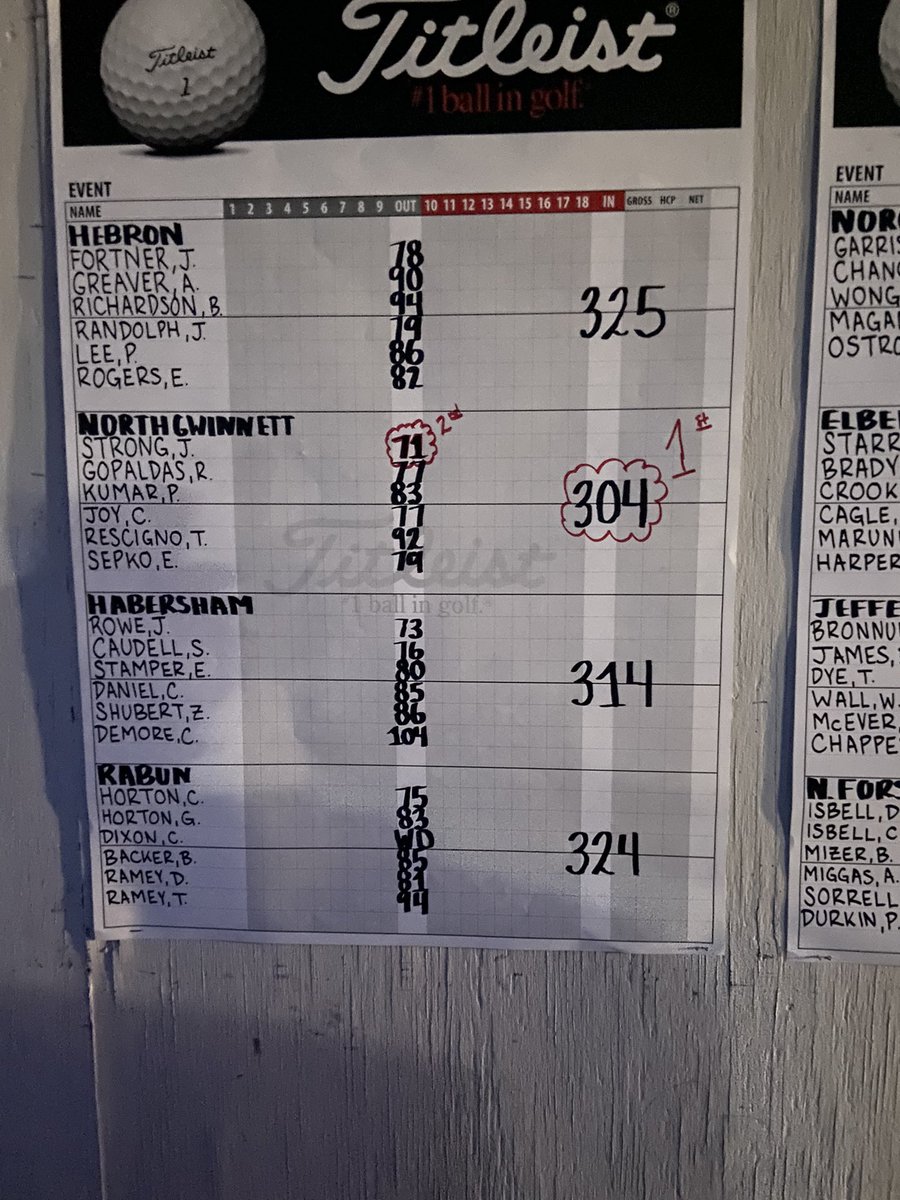 Titleist®
Titleist
1
#1 ball in golf.®
EVENT
NAME 1 2 3 4 5 6 7 8 9 OUT 10 11 12 13 14 15 16 17 18 IN GROSS HCP NET
HEBRON
FORTNER, J. 78
GREAVER, A. 90
RICHARDSON, B. 94
325
RANDOLPH, J. 79
LEE, P. 86
ROGERS, E. 82
NORTH GWINNETT
STRONG, J. 71 2nd
1st
GOPALDAS, R. 77
KUMAR, P. 83
304
JOY, C. 77
RESCIGNO, T. 92
SEPKO, E. 79
Titleist
#1 ball in golf.®
HABERSHAM
ROWE, J. 73
CAUDELL, S. 76
STAMPER, E. 80
314
DANIEL, C. 85
SHUBERT, Z. 86
DEMORE, C. 104
RABUN
HORTON, C. 75
HORTON, G. 83
DIXON, C. WD
324
BACKER, B. 85
RAMEY, D. 81
RAMEY, T. 94
EVENT
NAME
GARRIS
CHANG
WONG
MAGA
OSTRO
STARR
BRADY
CROOK
CAGLE,
MARUN
HARPER
JEFFE
BRONNU
JAMES,
DYE, T.
WALL, W.
McEVER,
CHAPPE
N. FORS
ISBELL, D
ISBELL, C
MIZER, B.
MIGGAS, A.
SORRELL
DURKIN, P.